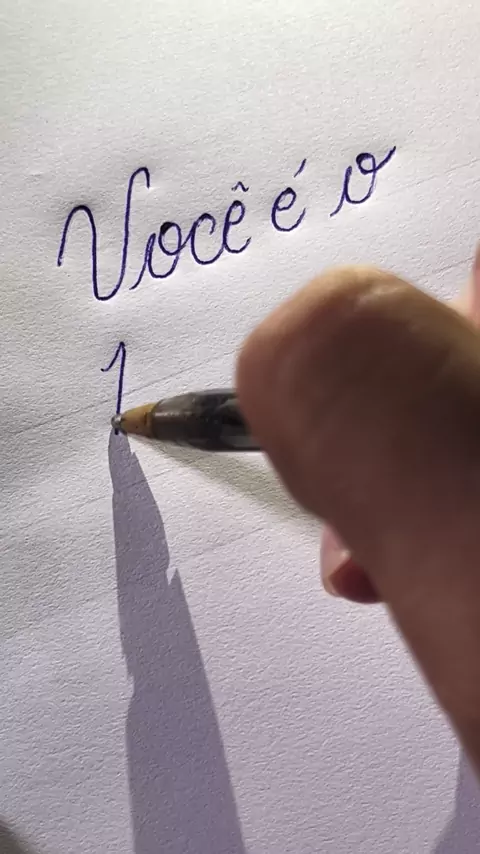 Você é o
1